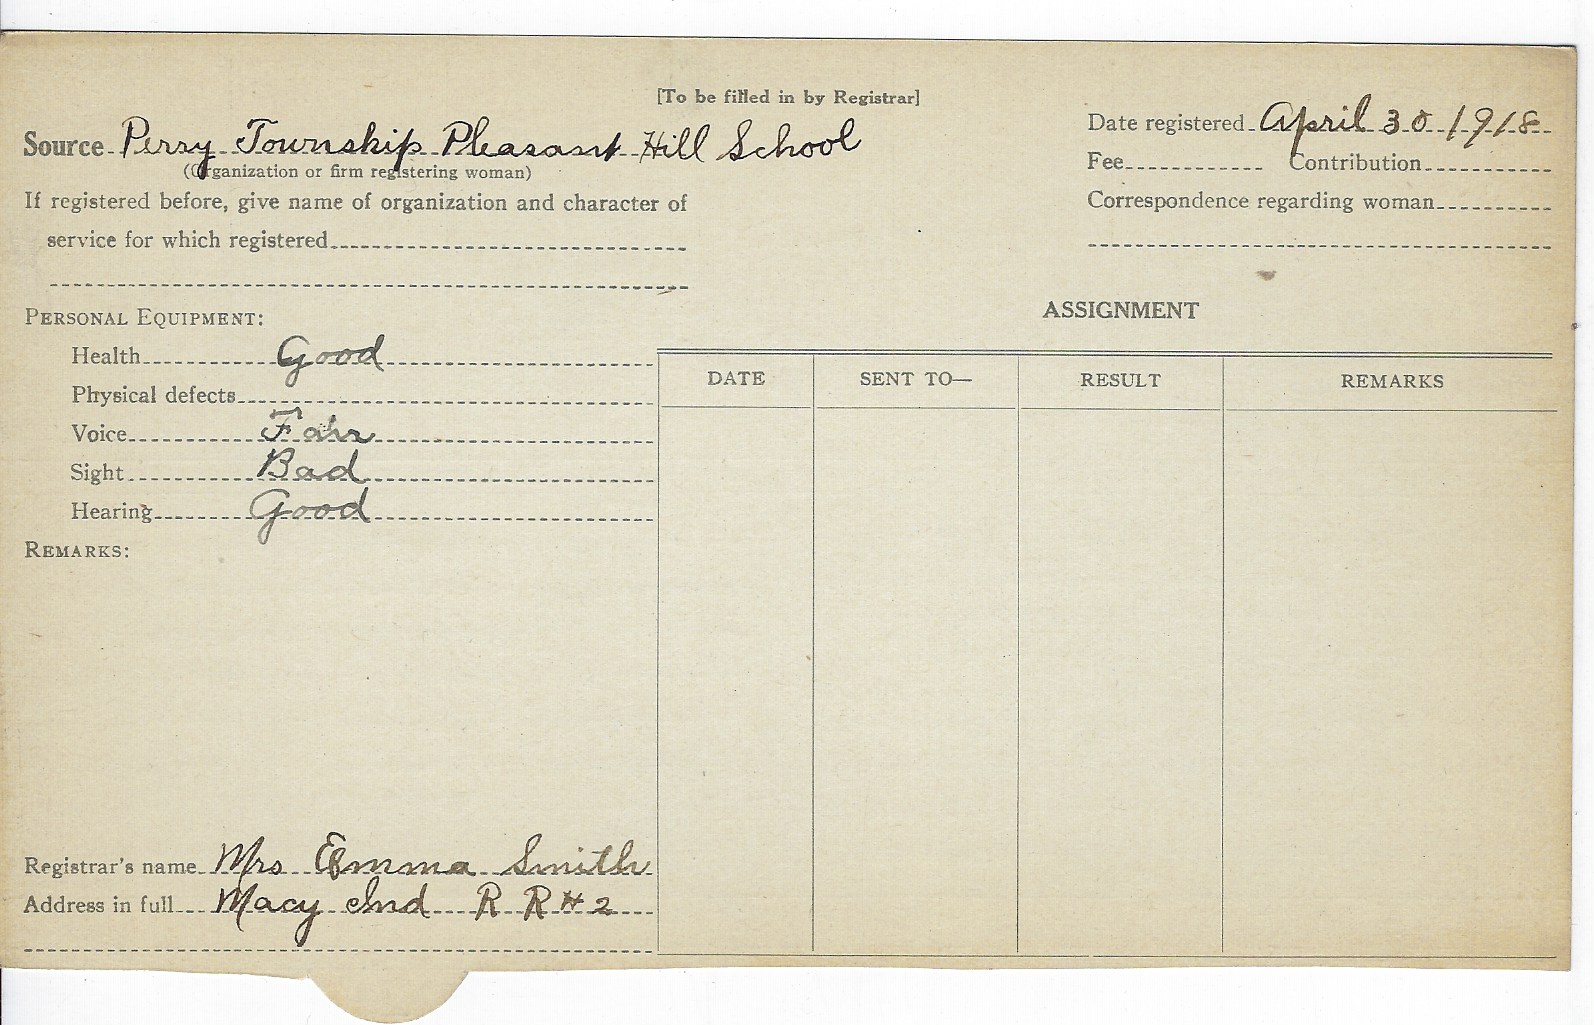 [To be filled in by Registrar]
Source Perry Township Pleasant Hill School
(Organization or firm registering woman)
If registered before, give name of organization and character of
service for which registered
Date registered April 30 1918
Fee Contribution
Correspondence regarding woman
PERSONAL EQUIPMENT:
Health Good
Physical defects
Voice Fair
Sight Bad
Hearing Good
REMARKS:
ASSIGNMENT
DATE SENT TO— RESULT REMARKS
Registrar's name Mrs Emma Smith
Address in full Macy Ind R R # 2